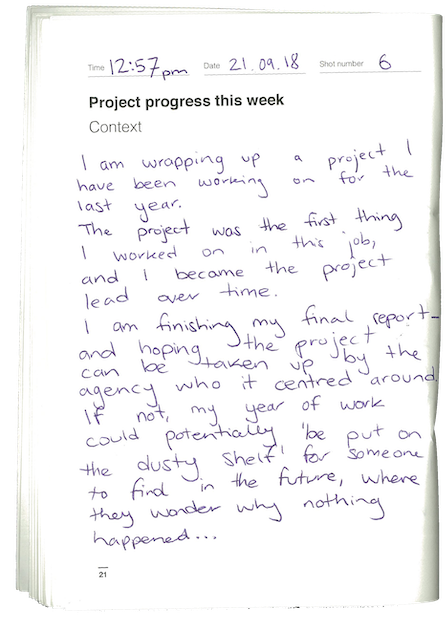 Time 12:57pm Date 21.09.18 Shot number 6
Project progress this week
Context
I am wrapping up a project I
have been working on for the
last year.
The project was the first thing
I worked on in this job,
and I became the project
lead over time.
I am finishing my final report-
and hoping the project
can be taken up by the
agency who it centred around.
If not, my year of work
could potentially 'be put on
the dusty shelf' for someone
to find in the future, where
they wonder why nothing
happened...
21